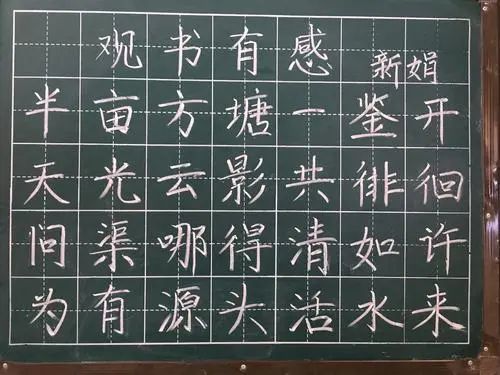 观书有感 新娟
半亩方塘一鉴开
天光云影共徘徊
问渠哪得清如许
为有源头活水来